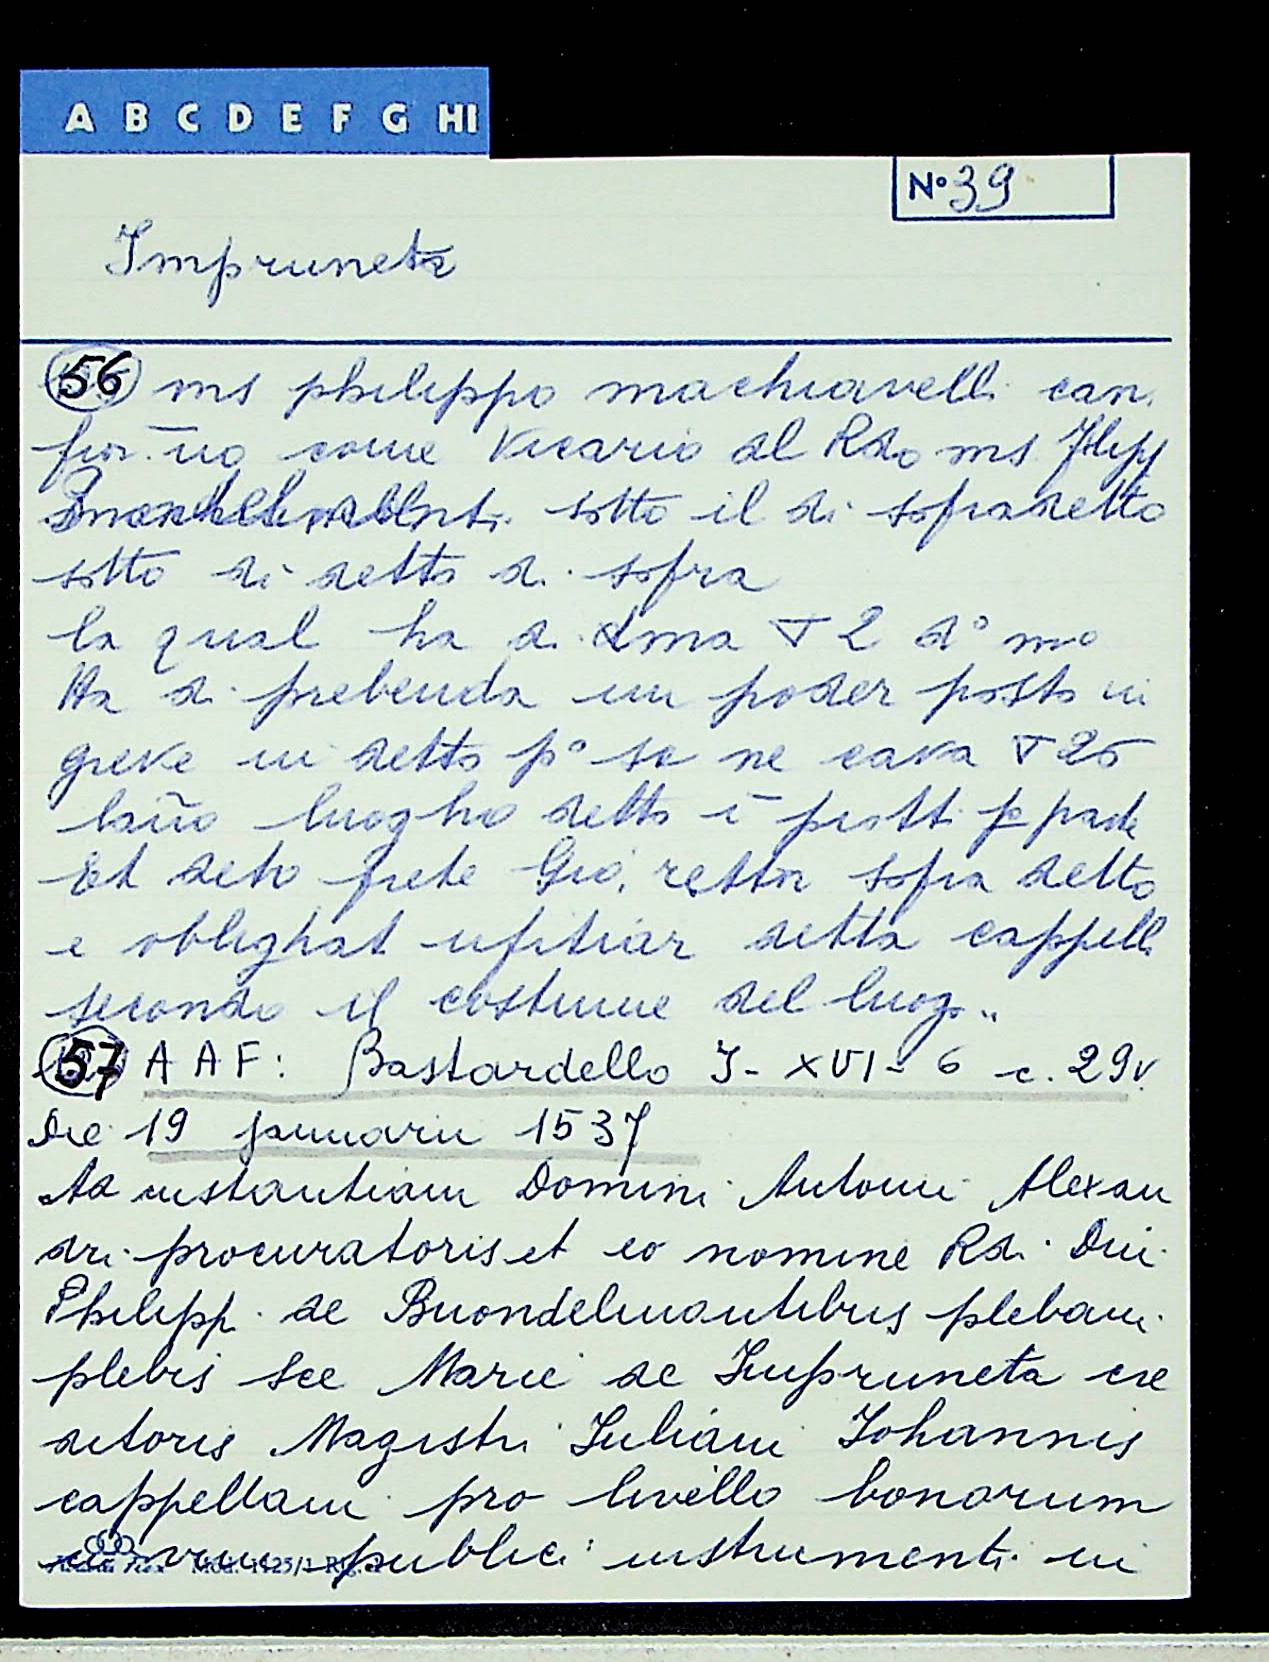 A B C D E F G HI
N° 39
Impruneta
56 ms philippo machiavelli can.
fior. no come Vicario al Rdo ms Filipp
sotto il di sopradetto
sotto di detto di sopra
la qual ha di dma ∇ 2 d° mo
Ha di prebenda un poder posto in
greve in detto p° se ne cava ∇ 25
lāno luogho detto i piott. p parte
Et detto prete Gio. rettor sopra detto
e oblighat ufitiar detta cappell
secondo il costume del luog.."
57 A A F: Bastardello I - XVI - 6 c. 29v.
Die 19 januarii 1537
Ad instantiam Domini Antonii Alexan
dri procuratoris et eo nomine Rdi Dni
Philippi de Buondelmontibus plebani
plebis Sce Marie de Impruneta cre
ditoris Magistri Juliani Johannis
cappellani pro livello bonorum
in vim publici instrumenti in
Mod. 1125/1